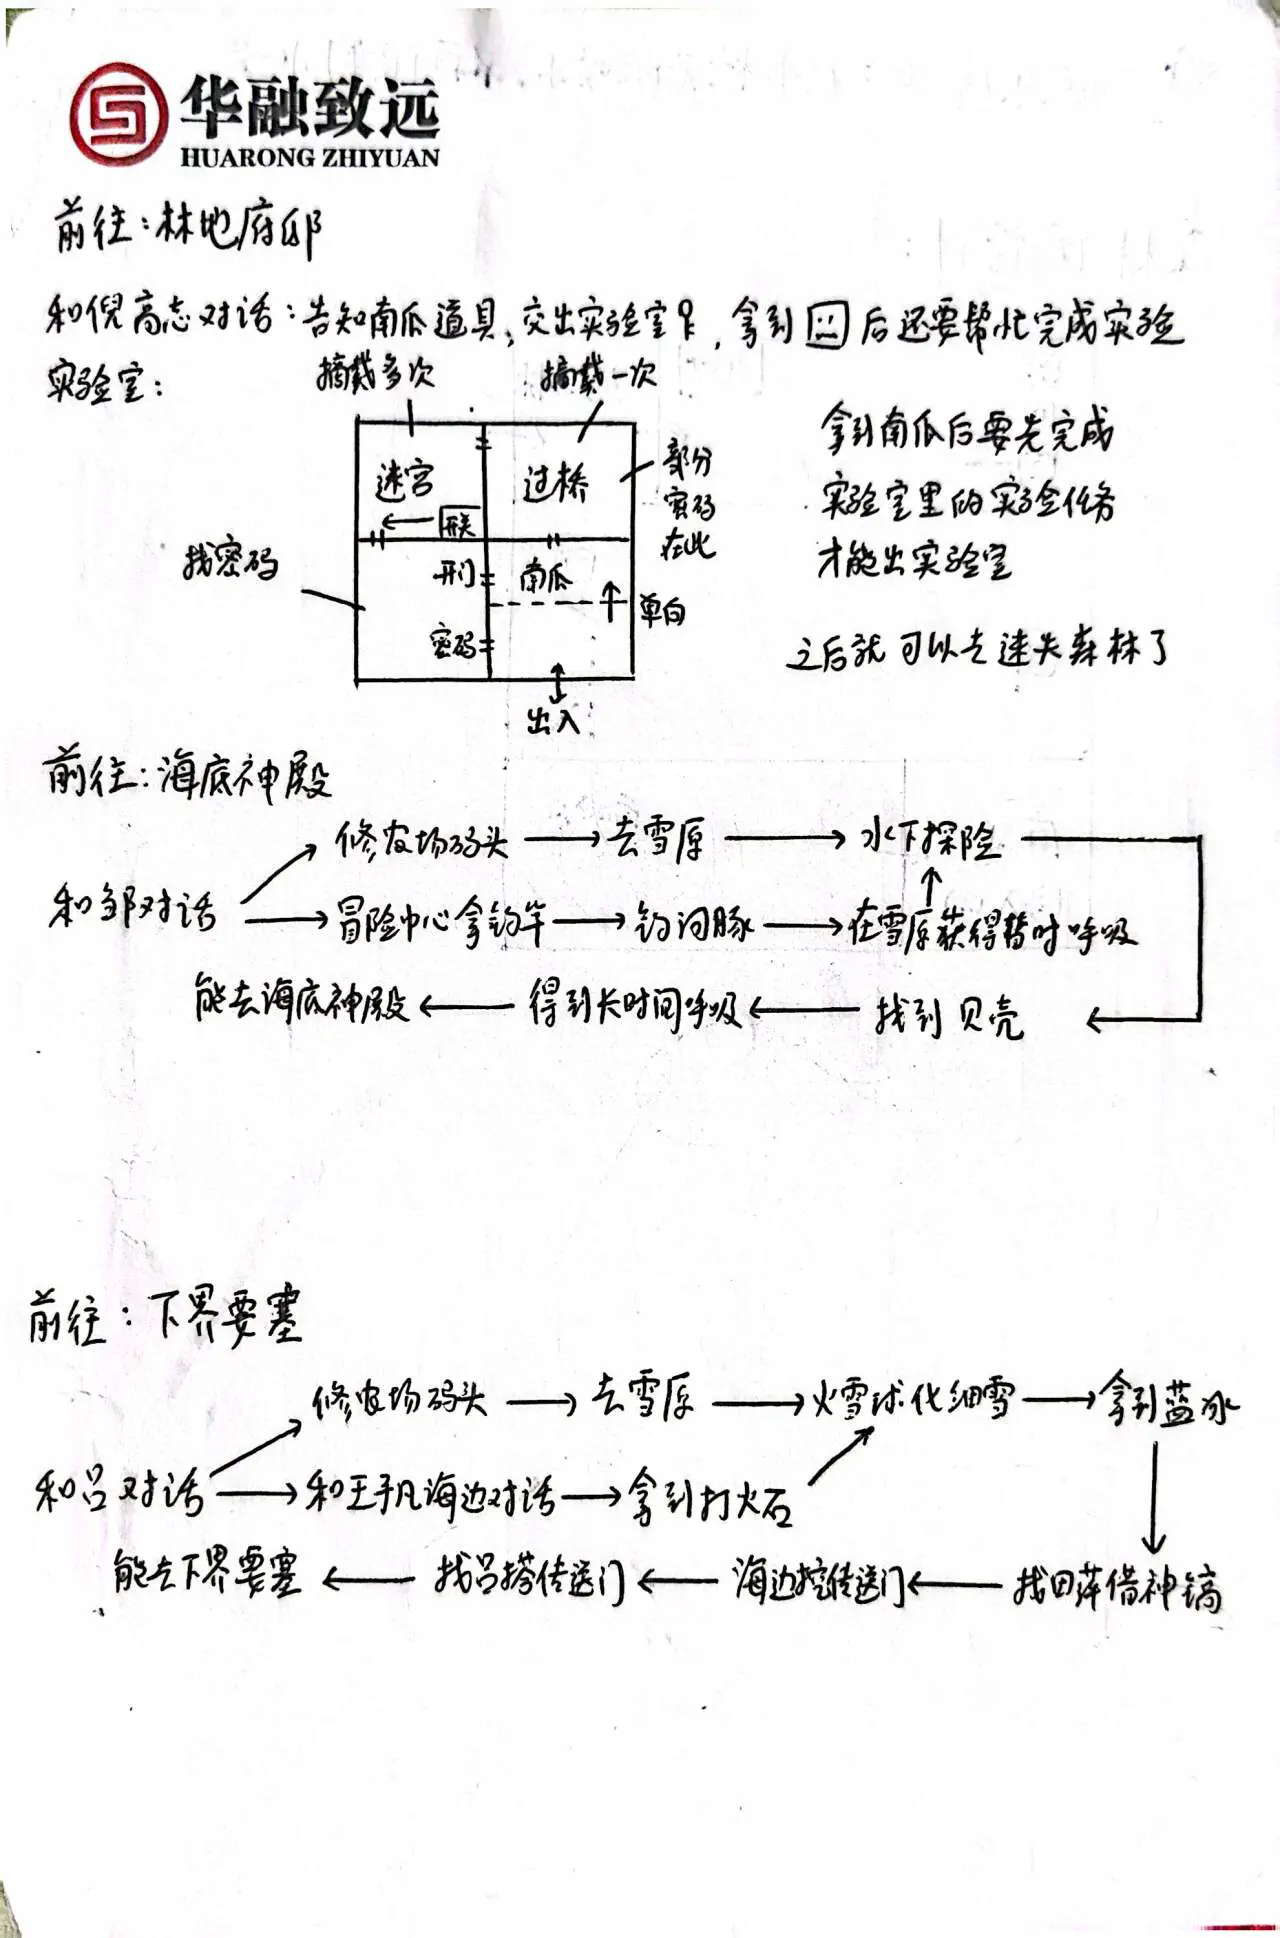 华融致远
HUARONG ZHIYUAN
前往：林地府邸
和倪高志对话：告知南瓜道具，交出实验室卡，拿到 后还要帮忙完成实验
实验室：
摘戴多次
摘戴一次
迷宫
过桥
部分
密码
在此
找密码
开关
开门
南瓜
单向
密码
出入
拿到南瓜后要先完成
实验室里的实验任务
才能出实验室
之后就可以去迷失森林了
前往：海底神殿
修农场码头 → 去雪原 → 水下探险
和邹对话 → 冒险中心拿钓竿 → 钓河豚 → 在雪原获得暂时呼吸
能去海底神殿 ← 得到长时间呼吸 ← 找到贝壳 ←
前往：下界要塞
修农场码头 → 去雪原 → 火雪球化细雪 → 拿到蓝冰
和吕对话 → 和王子凡海边对话 → 拿到打火石
能去下界要塞 ← 找吕搭传送门 ← 海边挖传送门 ← 找田萍借神镐